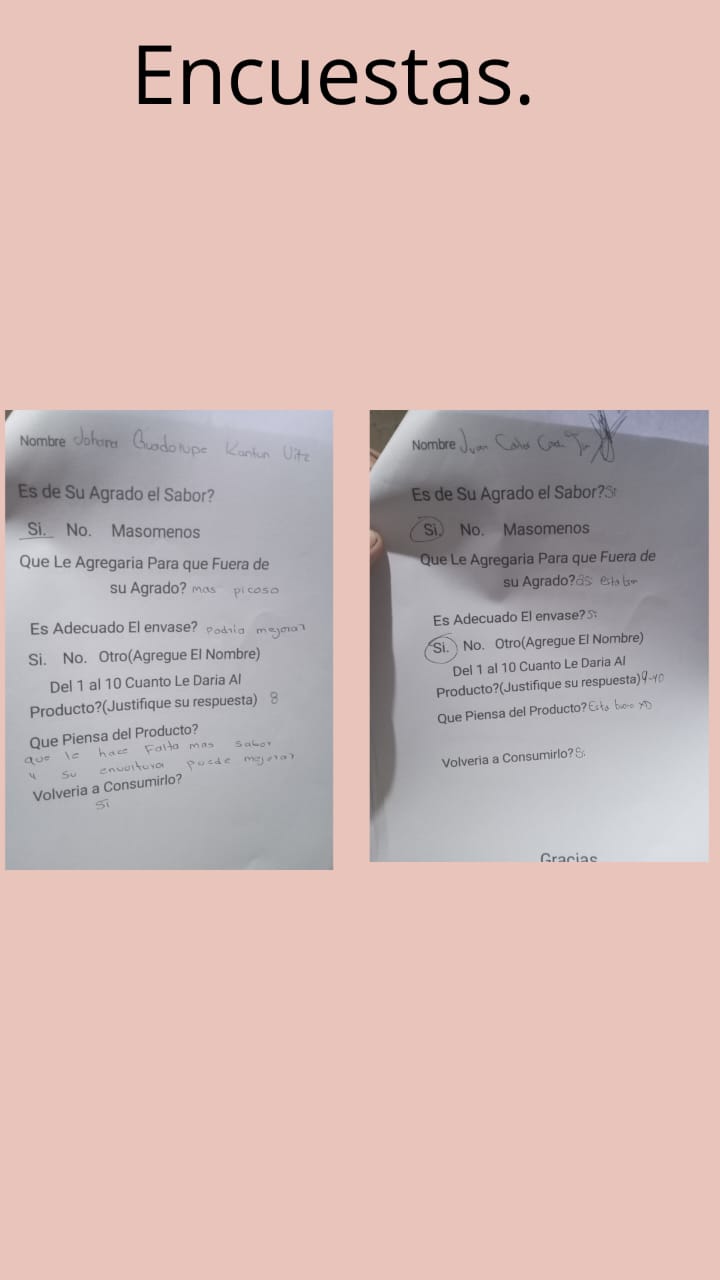 Encuestas.
Nombre Johana Guadalupe Kantun Uitz
Es de Su Agrado el Sabor?
Si. No. Masomenos
Que Le Agregaria Para que Fuera de
su Agrado? mas picoso
Es Adecuado El envase? podria mejorar
Si. No. Otro(Agregue El Nombre)
Del 1 al 10 Cuanto Le Daria Al
Producto?(Justifique su respuesta) 8
Que Piensa del Producto?
que le hace Falta mas sabor
y su envoltura puede mejorar
Volveria a Consumirlo?
Si
Nombre Juan
Es de Su Agrado el Sabor? Si
Si. No. Masomenos
Que Le Agregaria Para que Fuera de
su Agrado? asi esta bien
Es Adecuado El envase? Si
Si. No. Otro(Agregue El Nombre)
Del 1 al 10 Cuanto Le Daria Al
Producto?(Justifique su respuesta) 9-10
Que Piensa del Producto? Esta bueno XD
Volveria a Consumirlo? Si
Gracias